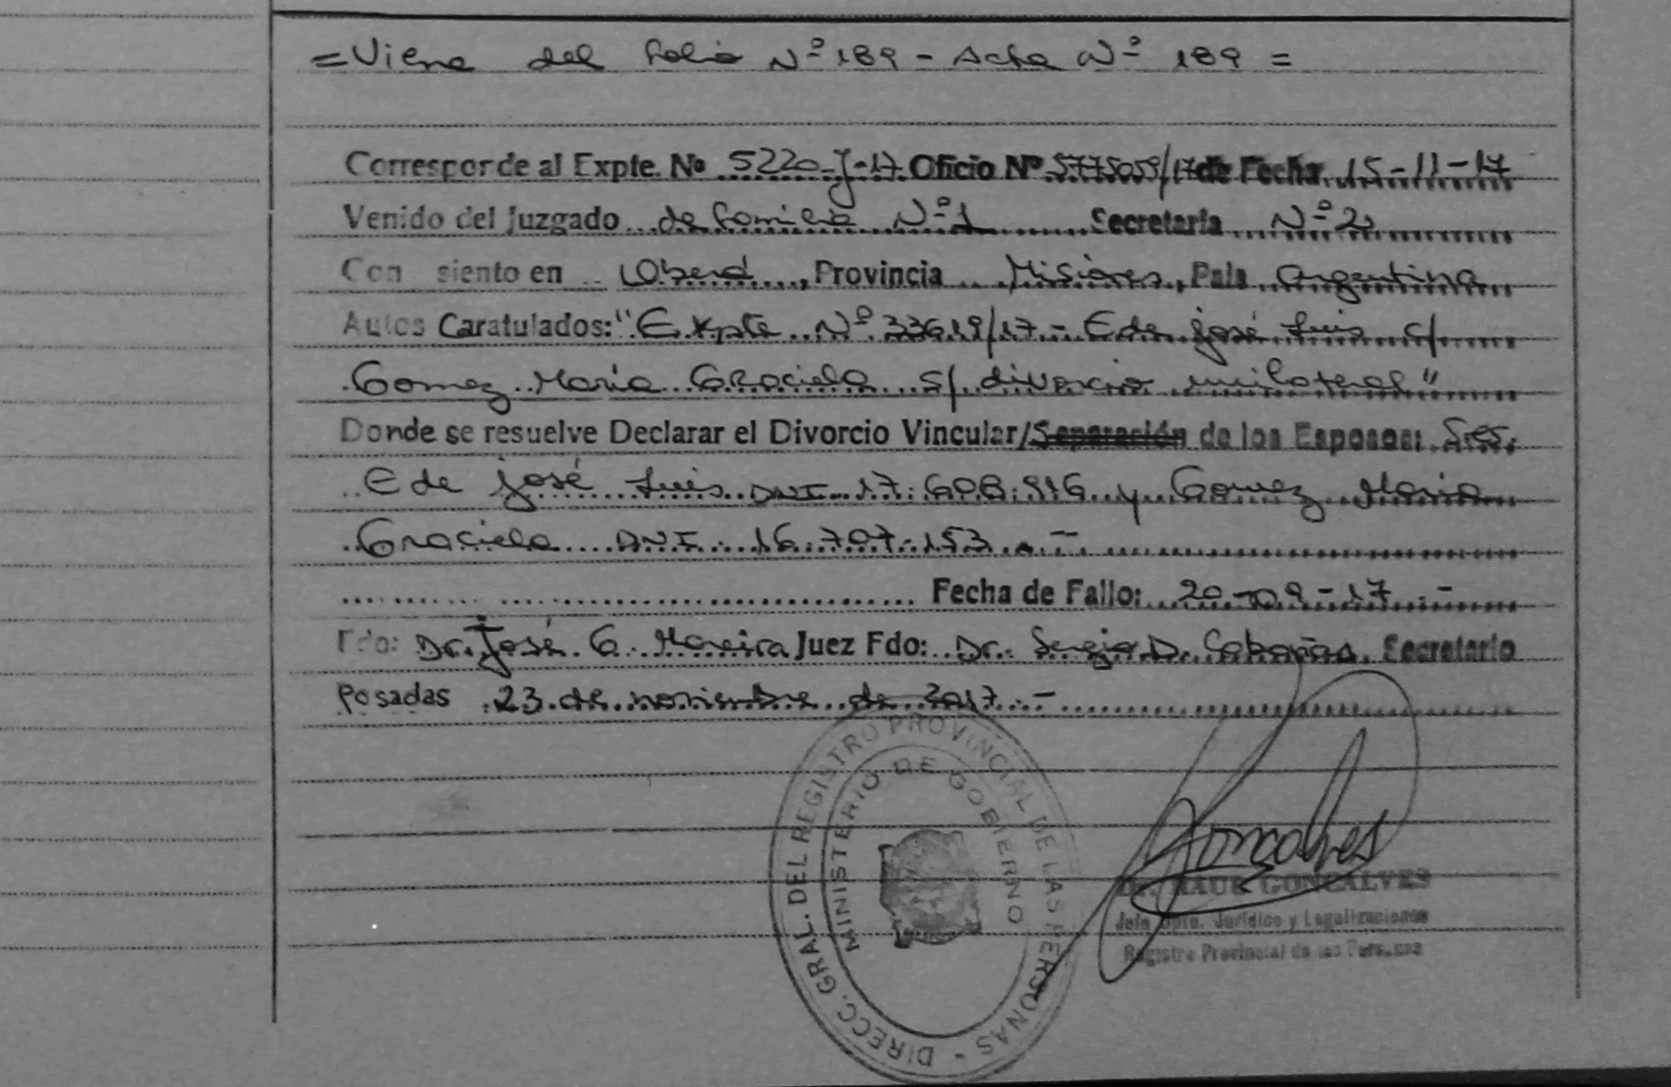 = Viene del folio Nº 189 - Acta Nº 189 =
Corresponde al Expte. Nº 5220-J-17 Oficio Nº 5775059/17 de Fecha 15-11-17
Venido del Juzgado de familia Nº 1 Secretaria Nº 2
Con siento en Oberá, Provincia Misiones, Pais Argentina
Autos Caratulados: "Expte Nº 33619/17 - Ede josé Luis c/
Gomez Maria Graciela s/ divorcio unilateral"
Donde se resuelve Declarar el Divorcio Vincular/Separación de los Esposos: Sres.
Ede josé Luis DNI 17.608.916 y Gomez Maria
Graciela DNI 16.707.153 . -
Fecha de Fallo: 20-09-17 . -
Fdo: Dr. José G. Moreira Juez Fdo: Dr. Sergio D. Cabañas, Secretario
Posadas 23 de noviembre de 2017. -
DIRECC. GRAL. DEL REGISTRO PROVINCIAL DE LAS PERSONAS -
MINISTERIO DE GOBIERNO
Goncalves
Dr. RAUL GONCALVES
Jefe Dpto. Jurídico y Legalizaciones
Registro Provincial de las Personas